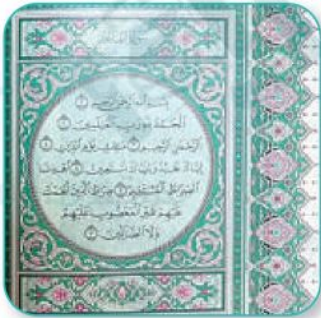 سورة الفاتحة
بسم الله الرحمن الرحيم ۝
الحمد لله رب العلمين ۝
الرحمن الرحيم ۝ ملك يوم الدين ۝
إياك نعبد وإياك نستعين ۝ اهدنا
الصراط المستقيم ۝ صراط الذين أنعمت
عليهم غير المغضوب عليهم
ولا الضالين ۝